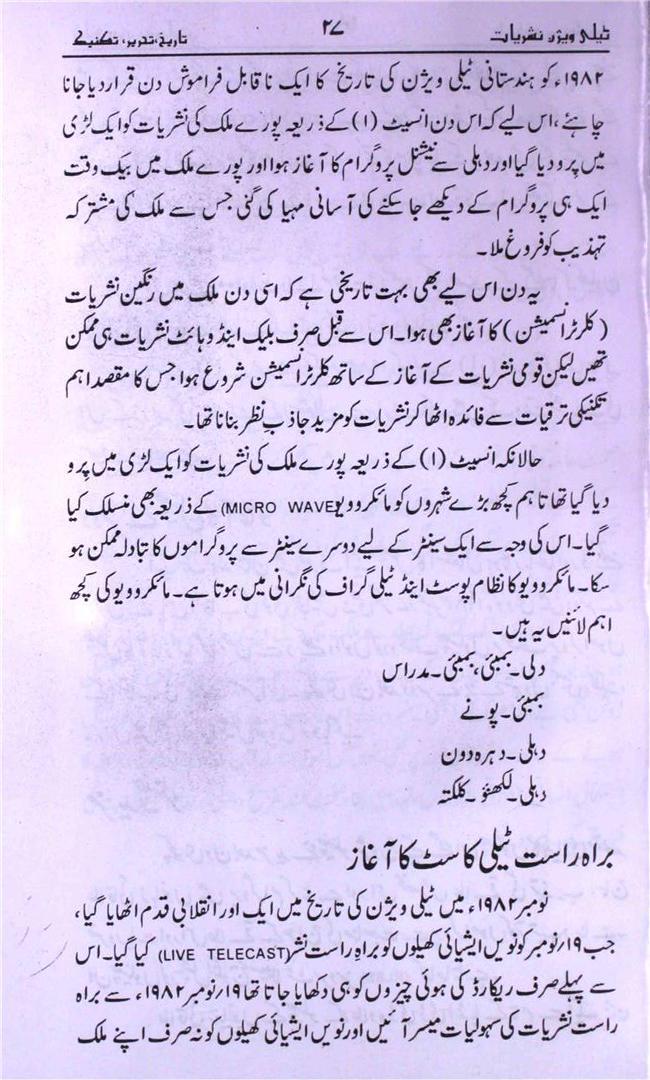 ٹیلی ویژن نشریات ۲۷ تاریخ، تحریر، تکنیک
۱۹۸۲ء کو ہندستانی ٹیلی ویژن کی تاریخ کا ایک ناقابل فراموش دن قرار دیا جانا
چاہئے، اس لیے کہ اس دن انسیٹ (۱) کے ذریعہ پورے ملک کی نشریات کو ایک لڑی
میں پرو دیا گیا اور دہلی سے نیشنل پروگرام کا آغاز ہوا اور پورے ملک میں بیک وقت
ایک ہی پروگرام کے دیکھے جا سکنے کی آسانی مہیا کی گئی جس سے ملک کی مشترکہ
تہذیب کو فروغ ملا۔
یہ دن اس لیے بھی بہت تاریخی ہے کہ اسی دن ملک میں رنگین نشریات
(کلر ٹرانسمیشن) کا آغاز بھی ہوا۔ اس سے قبل صرف بلیک اینڈ وہائٹ نشریات ہی ممکن
تھیں لیکن قومی نشریات کے آغاز کے ساتھ کلر ٹرانسمیشن شروع ہوا جس کا مقصد اہم
تکنیکی ترقیات سے فائدہ اٹھا کر نشریات کو مزید جاذب نظر بنانا تھا۔
حالانکہ انسیٹ (۱) کے ذریعہ پورے ملک کی نشریات کو ایک لڑی میں پرو
دیا گیا تھا تاہم کچھ بڑے شہروں کو مائکروویو (MICRO WAVE) کے ذریعہ بھی منسلک کیا
گیا۔ اس کی وجہ سے ایک سینٹر کے لیے دوسرے سینٹر سے پروگراموں کا تبادلہ ممکن ہو
سکا۔ مائکروویو کا نظام پوسٹ اینڈ ٹیلی گراف کی نگرانی میں ہوتا ہے۔ مائکروویو کی کچھ
اہم لائنیں یہ ہیں۔
دلی۔ بمبئی، بمبئی۔ مدراس
بمبئی۔ پونے
دہلی۔ دہرہ دون
دہلی۔ لکھنؤ۔ کلکتہ
براہ راست ٹیلی کاسٹ کا آغاز
نومبر ۱۹۸۲ء میں ٹیلی ویژن کی تاریخ میں ایک اور انقلابی قدم اٹھایا گیا،
جب ۱۹/نومبر کو نویں ایشیائی کھیلوں کو براہ راست نشر (LIVE TELECAST) کیا گیا۔ اس
سے پہلے صرف ریکارڈ کی ہوئی چیزوں کو ہی دکھایا جاتا تھا ۱۹/نومبر ۱۹۸۲ء سے براہ
راست نشریات کی سہولیات میسر آئیں اور نویں ایشیائی کھیلوں کو نہ صرف اپنے ملک